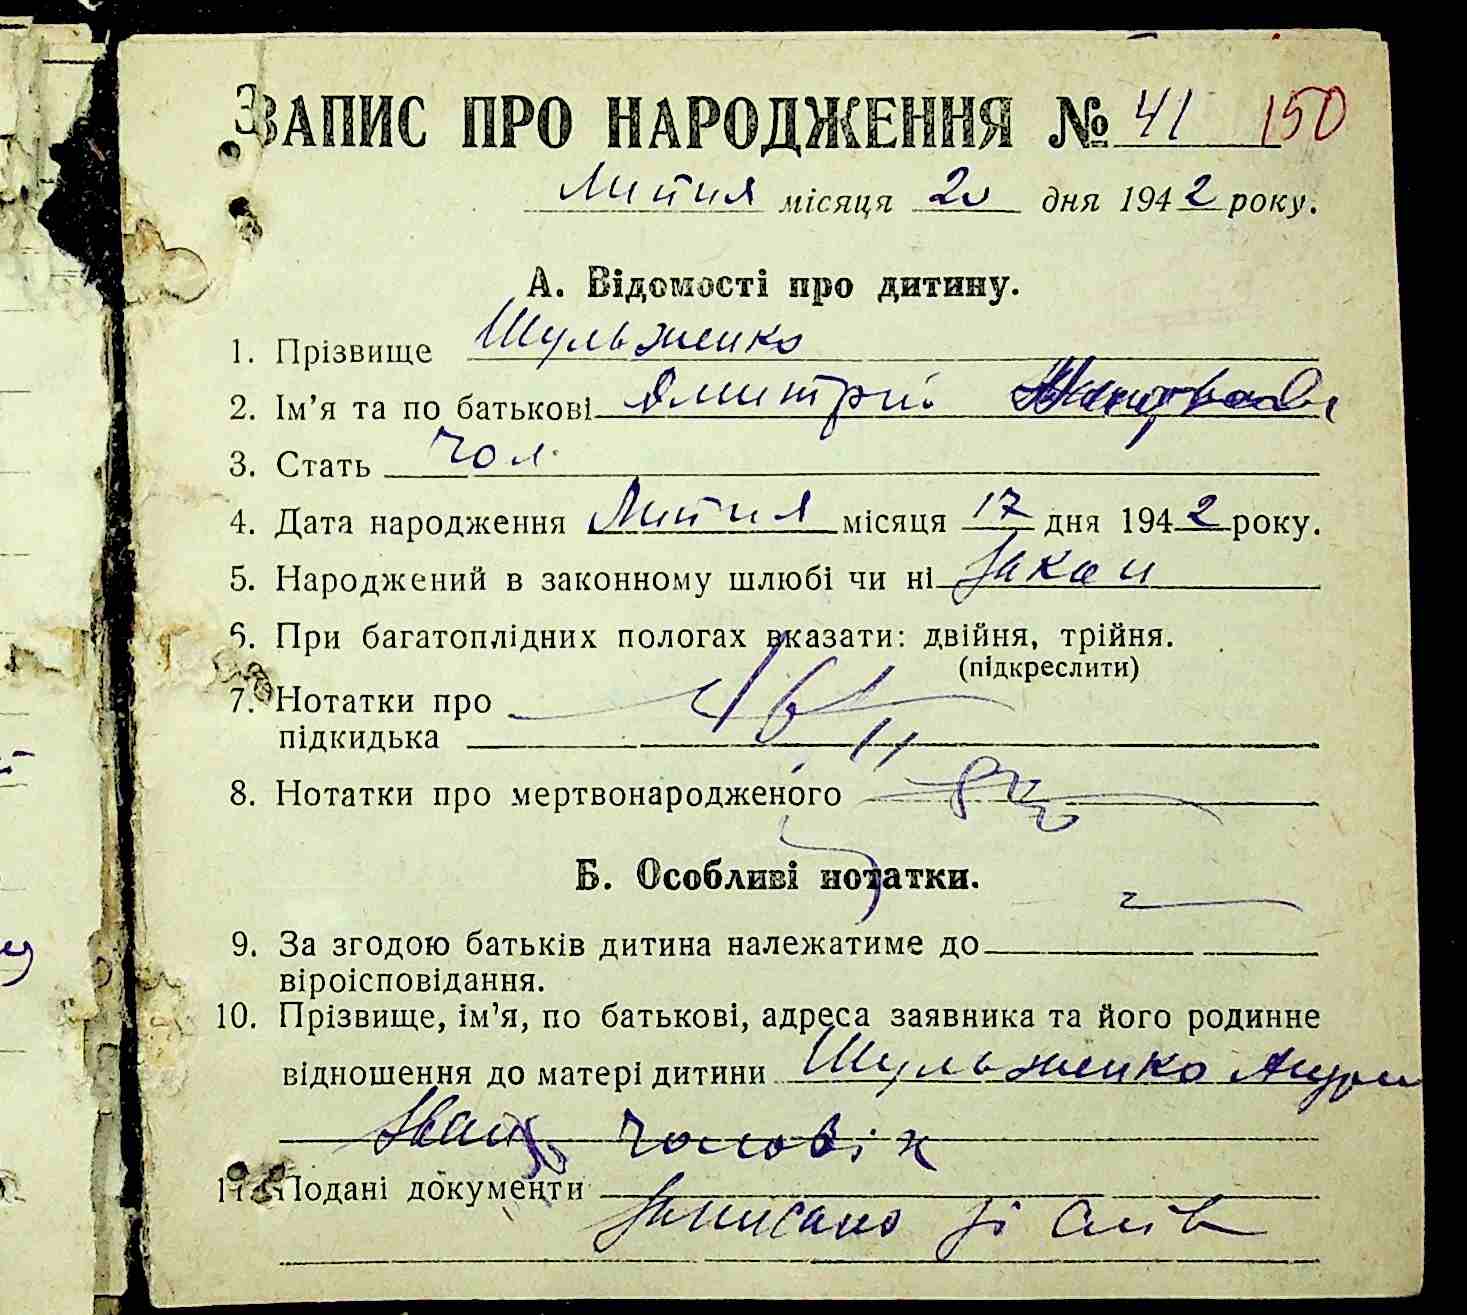 ЗАПИС ПРО НАРОДЖЕННЯ № 41 150
Липня місяця 20 дня 1942 року.
А. Відомості про дитину.
1. Прізвище Шульженко
2. Ім’я та по батькові Дмитрій
3. Стать Чол.
4. Дата народження Липня місяця 17 дня 1942 року.
5. Народжений в законному шлюбі чи ні Закон
6. При багатоплідних пологах вказати: двійня, трійня.
(підкреслити)
7. Нотатки про
підкидька
8. Нотатки про мертвонародженого
Б. Особливі нотатки.
9. За згодою батьків дитина належатиме до
віроісповідання.
10. Прізвище, ім’я, по батькові, адреса заявника та його родинне
відношення до матері дитини Шульженко
чоловік
11. Подані документи
Записано зі слів